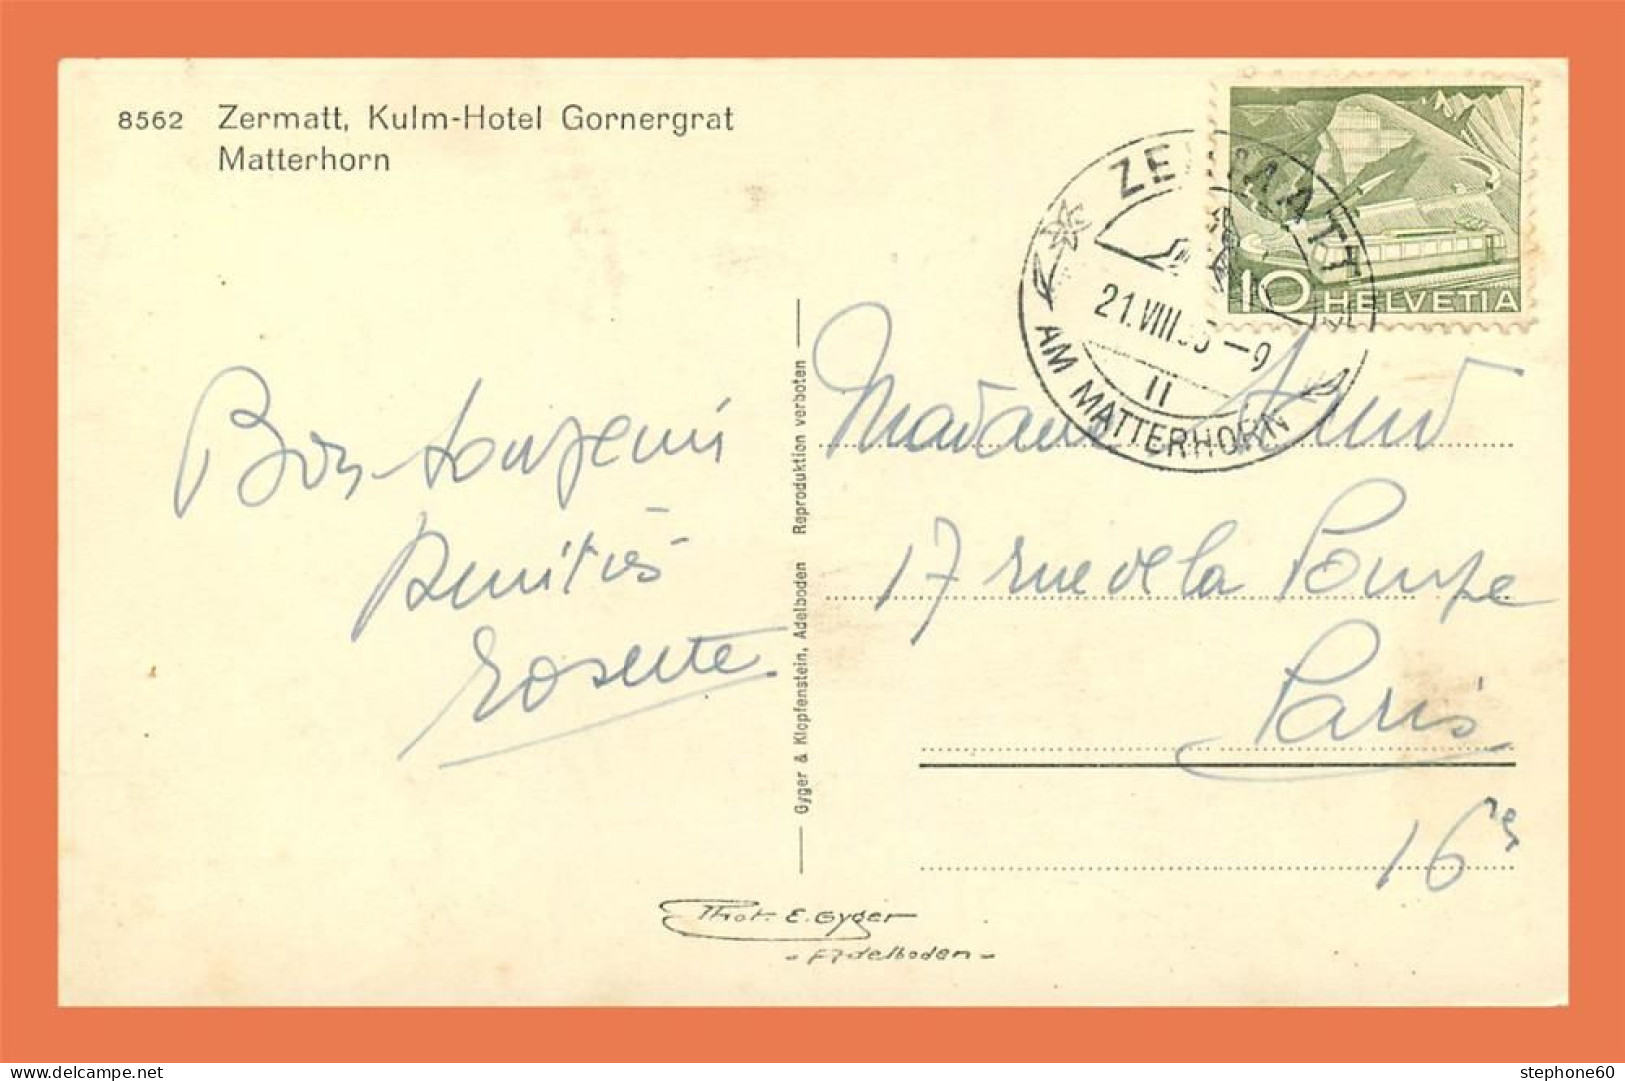 8562 Zermatt, Kulm-Hotel Gornergrat
Matterhorn
ZERMATT
21.VIII. –9
11
AM MATTERHORN
10 HELVETIA
Bon souvenir
Amitiés
Gyger & Klopfenstein, Adelboden Reproduktion verboten
Madame
17 rue de la Pompe
Paris
16
Phot. E. Gyger
- Adelboden -
stephone60